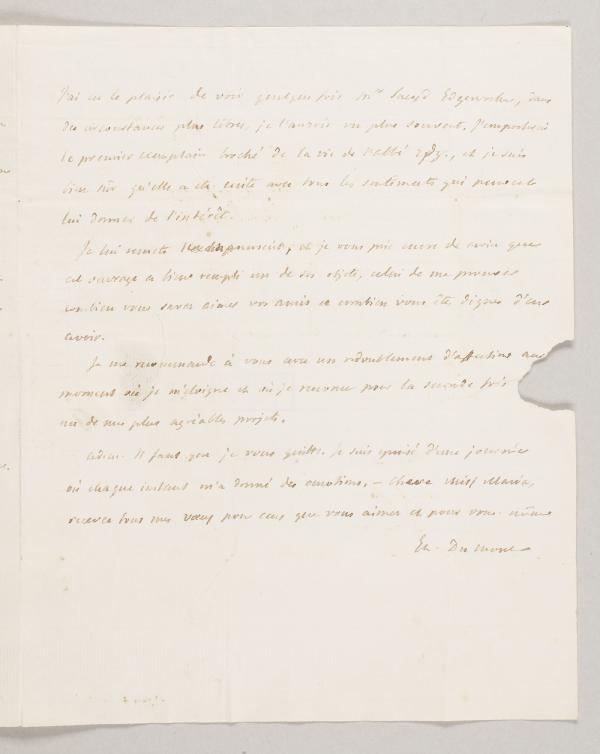 J'ai eu le plaisir de voir quelques fois Mr Sneyd Edgeworth, dans
des circonstances plus libres, je l'aurois vu plus souvent. J'emporterai
le premier exemplaire broché de la vie de l'abbé Edg., et je suis
bien sûr qu'elle a été écrite avec tous les sentiments qui peuvent
lui donner de l'intérêt.
Je lui remets manuscrit, et je vous prie encore de croire que
cet ouvrage a bien rempli un de ses objets, celui de me prouver
combien vous savez aimer vos amis et combien vous êtes digne d'en
avoir.
Je me recommande à vous avec un redoublement d'affection au
moment où je m'éloigne et où je renonce pour la seconde fois
un de mes plus agréables projets.
adieu. Il faut que je vous quitte. Je suis épuisé d'une journée
où chaque instant m'a donné des émotions. – Chere Miss Maria,
recevez tous mes vœux pour ceux que vous aimez et pour vous-même
Et. Dumont